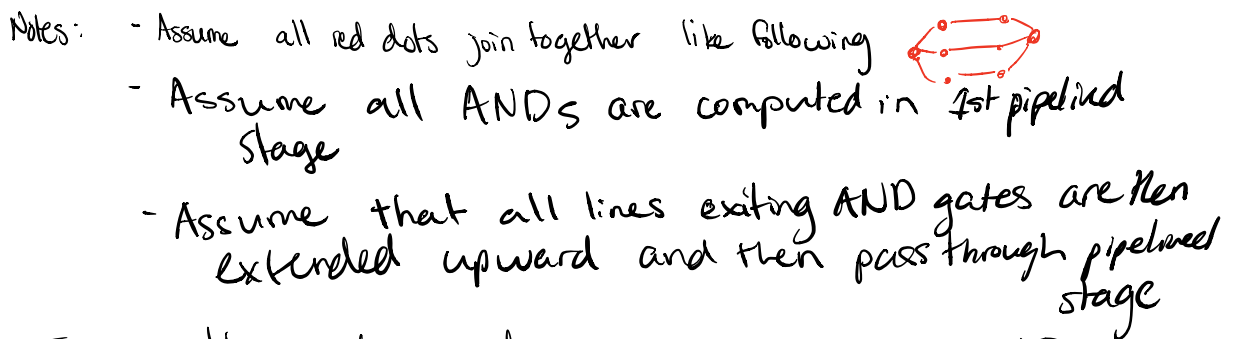 Notes: - Assume all red dots join together like following
- Assume all ANDs are computed in 1st pipelined
stage
- Assume that all lines exiting AND gates are then
extended upward and then pass through pipelined
stage